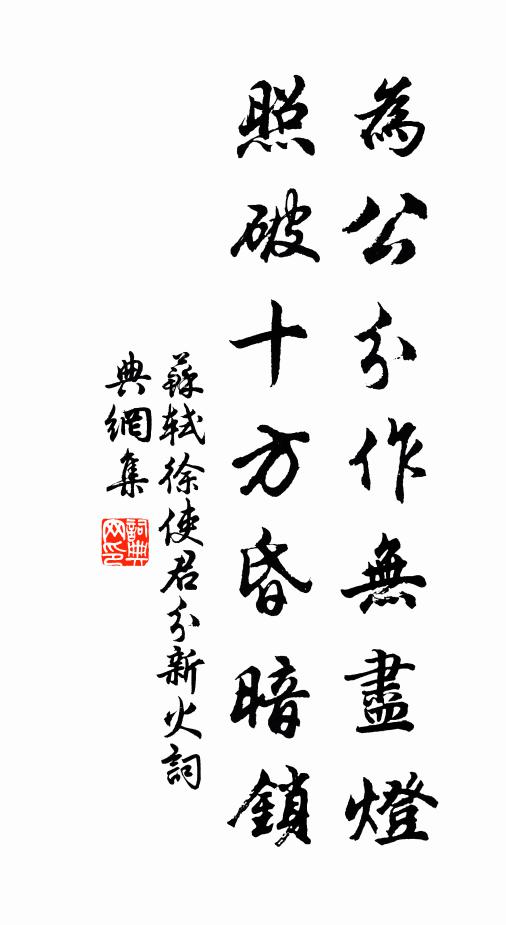 為公分作無盡燈
照破十方昏暗鎖
蘇軾徐使君分新火詞
典網集
詞典网印